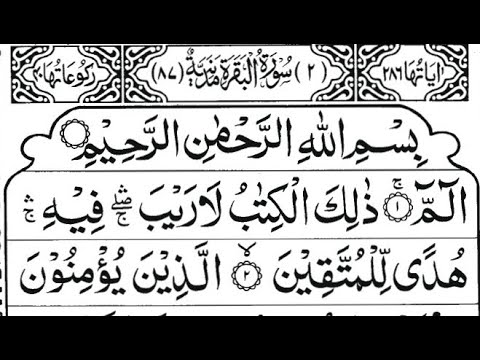 اٰیَاتُهَا ٢٨٦ (٢) سُوْرَةُ الْبَقَرَةِ مَدَنِيَّةٌ (٨٧) رُكُوْعَاتُهَا ٤٠
بِسْمِ اللهِ الرَّحْمٰنِ الرَّحِيْمِ
الٓمّٓ ۚ ﴿١﴾ ذٰلِكَ الْكِتٰبُ لَا رَيْبَ ۛۖ فِيْهِ ۛۚ
هُدًى لِّلْمُتَّقِيْنَ ۙ ﴿٢﴾ الَّذِيْنَ يُؤْمِنُوْنَ